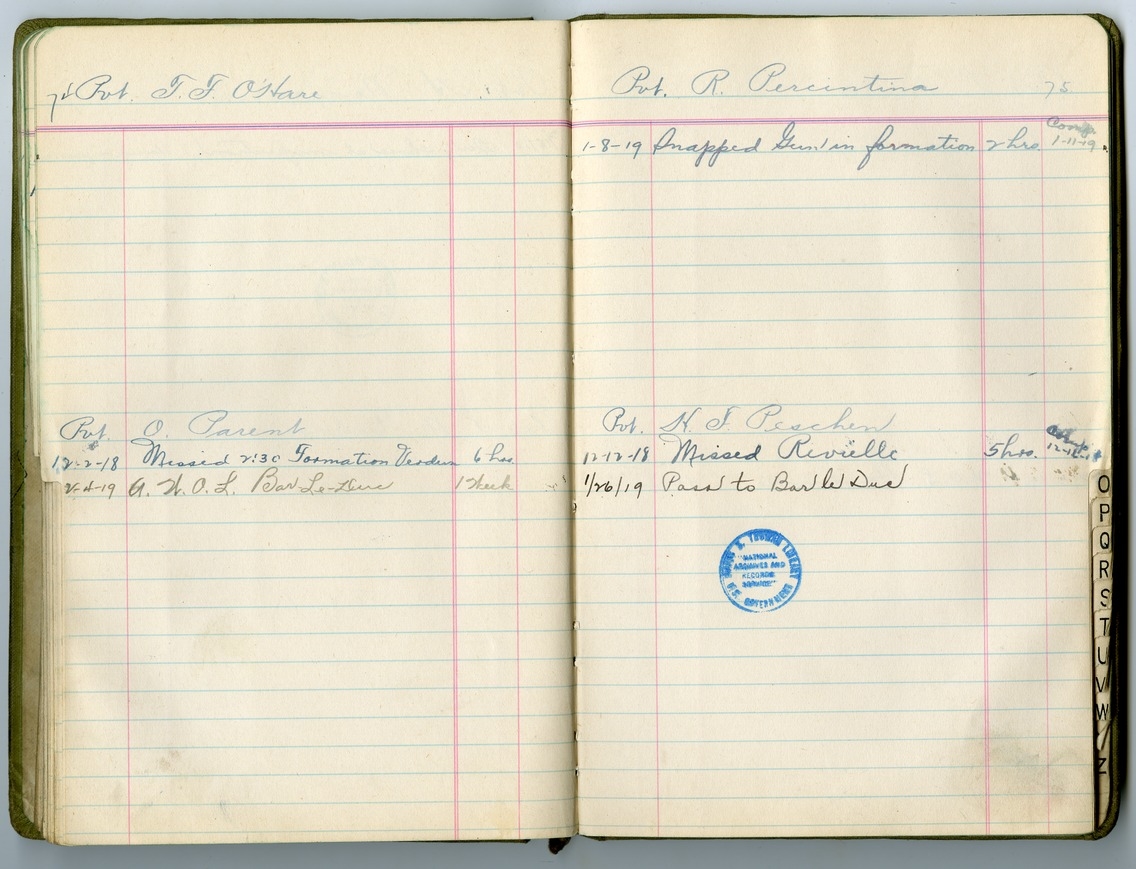 74 Pvt. T. F. O'Hare
Pvt. O. Parent
12-2-18 Missed 2:30 Formation Verdun 6 hrs.
2-4-19 A. W. O. L. Bar Le-Duc 1 Week
Pvt. R. Percintina 75
1-8-19 Snapped Gun in formation 2 hrs. Comp. 1-11-19
Pvt. H. F. Peschen
12-12-18 Missed Revielle 5 hrs.
1/26/19 Pass to Bar le Duc
HARRY S. TRUMAN LIBRARY
"NATIONAL
ARCHIVES AND
RECORDS
SERVICE"
U.S. GOVERNMENT
O
P
Q
R
S
T
U
V
W
Z